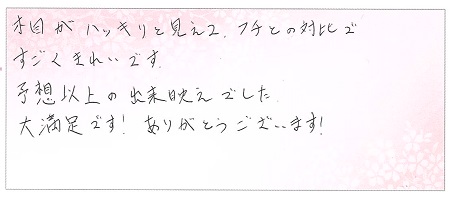 木目がハッキリと見えて、フチとの対比で
すごくきれいです。
予想以上の出来映えでした
大満足です! ありがとうございます!